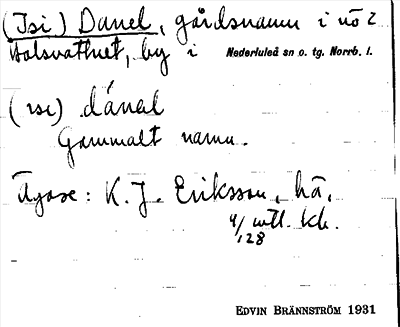 (Isi) Danel, gårdsnamn i nö 2
Holsvattnet, by i Nederluleå sn o. tg. Norrb. l.
(ısi) dánəl
Gammalt namn.
Ägare: K. J. Eriksson, hå,
4/ mtl. kh.
128
EDVIN BRÄNNSTRÖM 1931